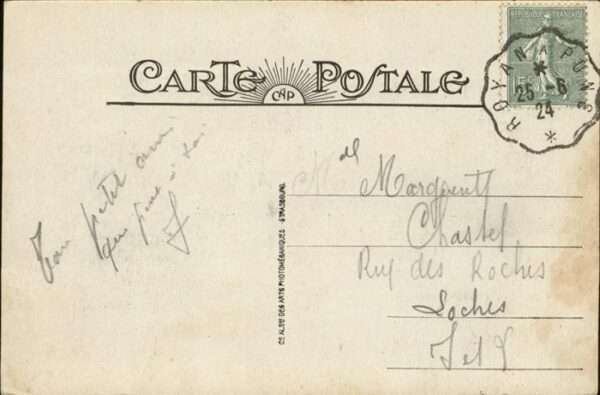 CARTE POSTALE
CAP
RÉPUBLIQUE FRANÇAISE
15c
ROYAN A PONS
25-6
24
Ton petit ami
qui pense à toi
J
Mel Marguerite
Chastel
Rue des Roches
Loches
I et L
Cie ALSNE DES ARTS PHOTOMÉCANIQUES - STRASBOURG